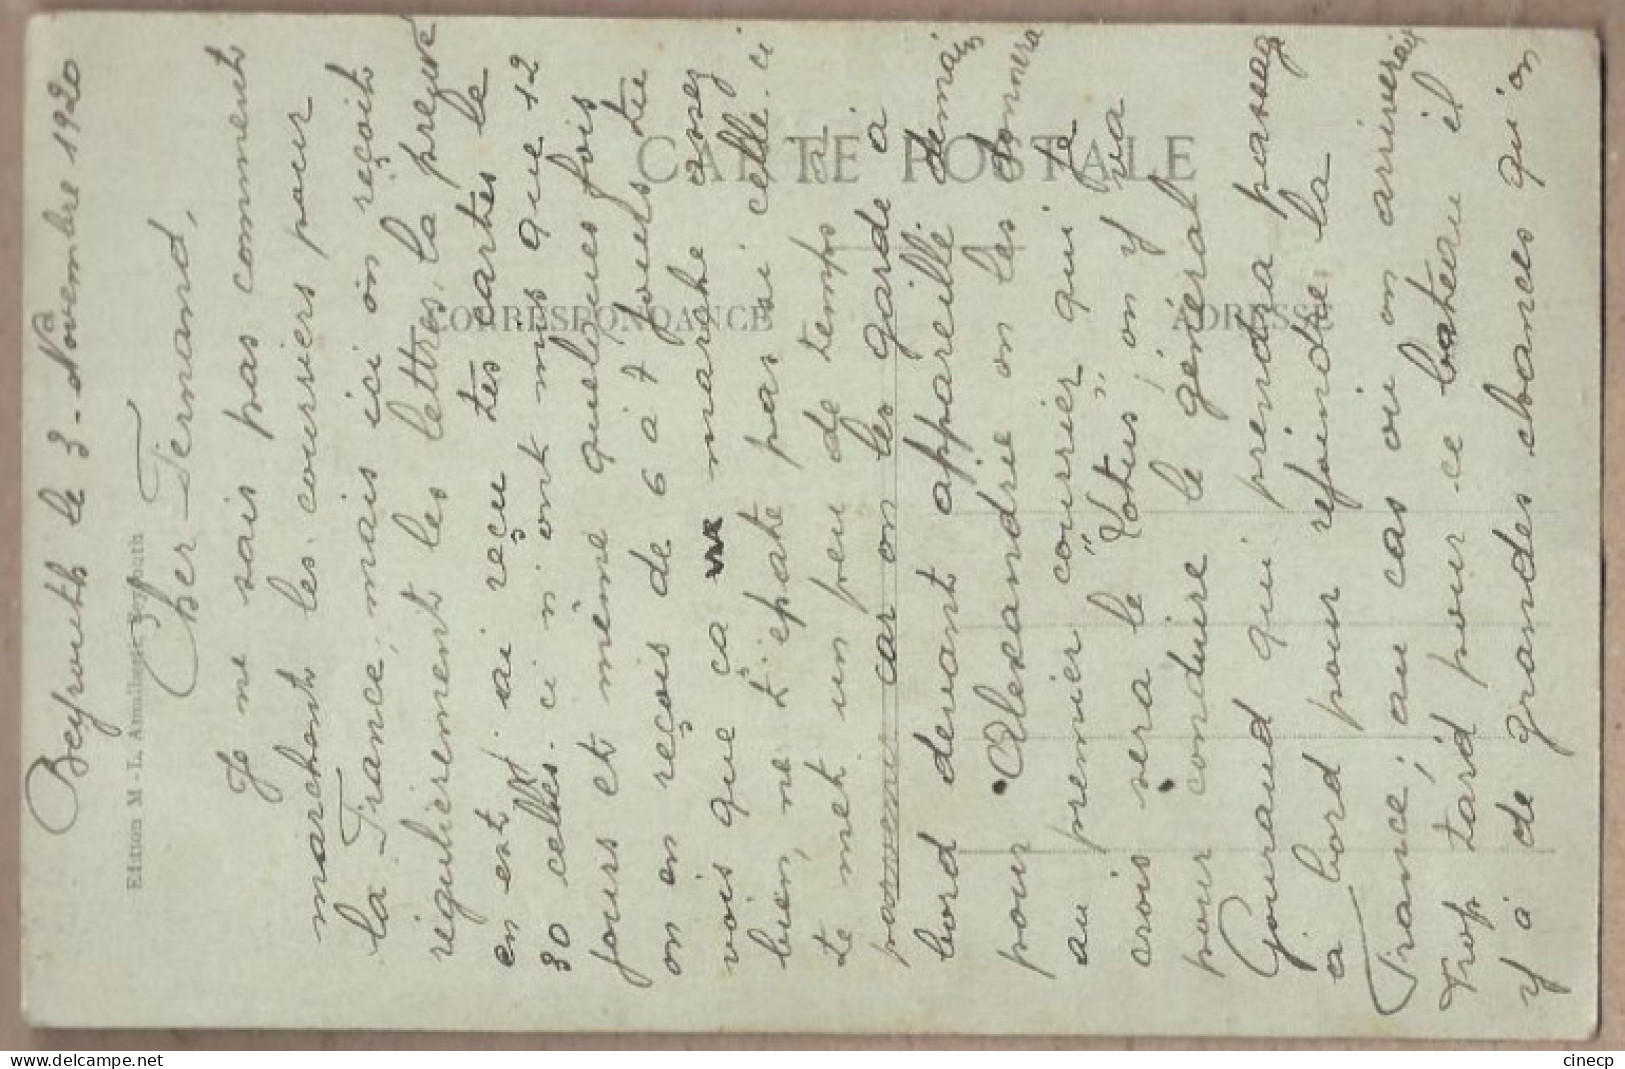 Beyrouth le 3 - Novembre 1920
Cher Fernand,
Je ne sais pas comment
marchent les courriers pour
la France, mais ici on reçoit
régulièrement les lettres, la preuve
en est, j'ai reçu tes cartes le
30 celles-ci n'ont mis que 12
jours et même quelques fois
on en reçois de 6 à 7 jours tu
vois que ça marche assez
bien, ne t'épate pas si celle-ci
te met un peu de temps à
parvenir car on les garde à
bord devant appareillé demain
pour Alexandrie on les donnera
au premier courrier qui je
crois sera le "Lotus", on y va
pour conduire le général
Gouraud qui prendra passage
à bord pour rejoindre la
France; au cas où on arriverait
trop tard pour ce bateau il
y a de grandes chances qu'on
CARTE POSTALE
CORRESPONDANCE
ADRESSE
Edition M - L. Beyrouth
delcampe.net
cinecp